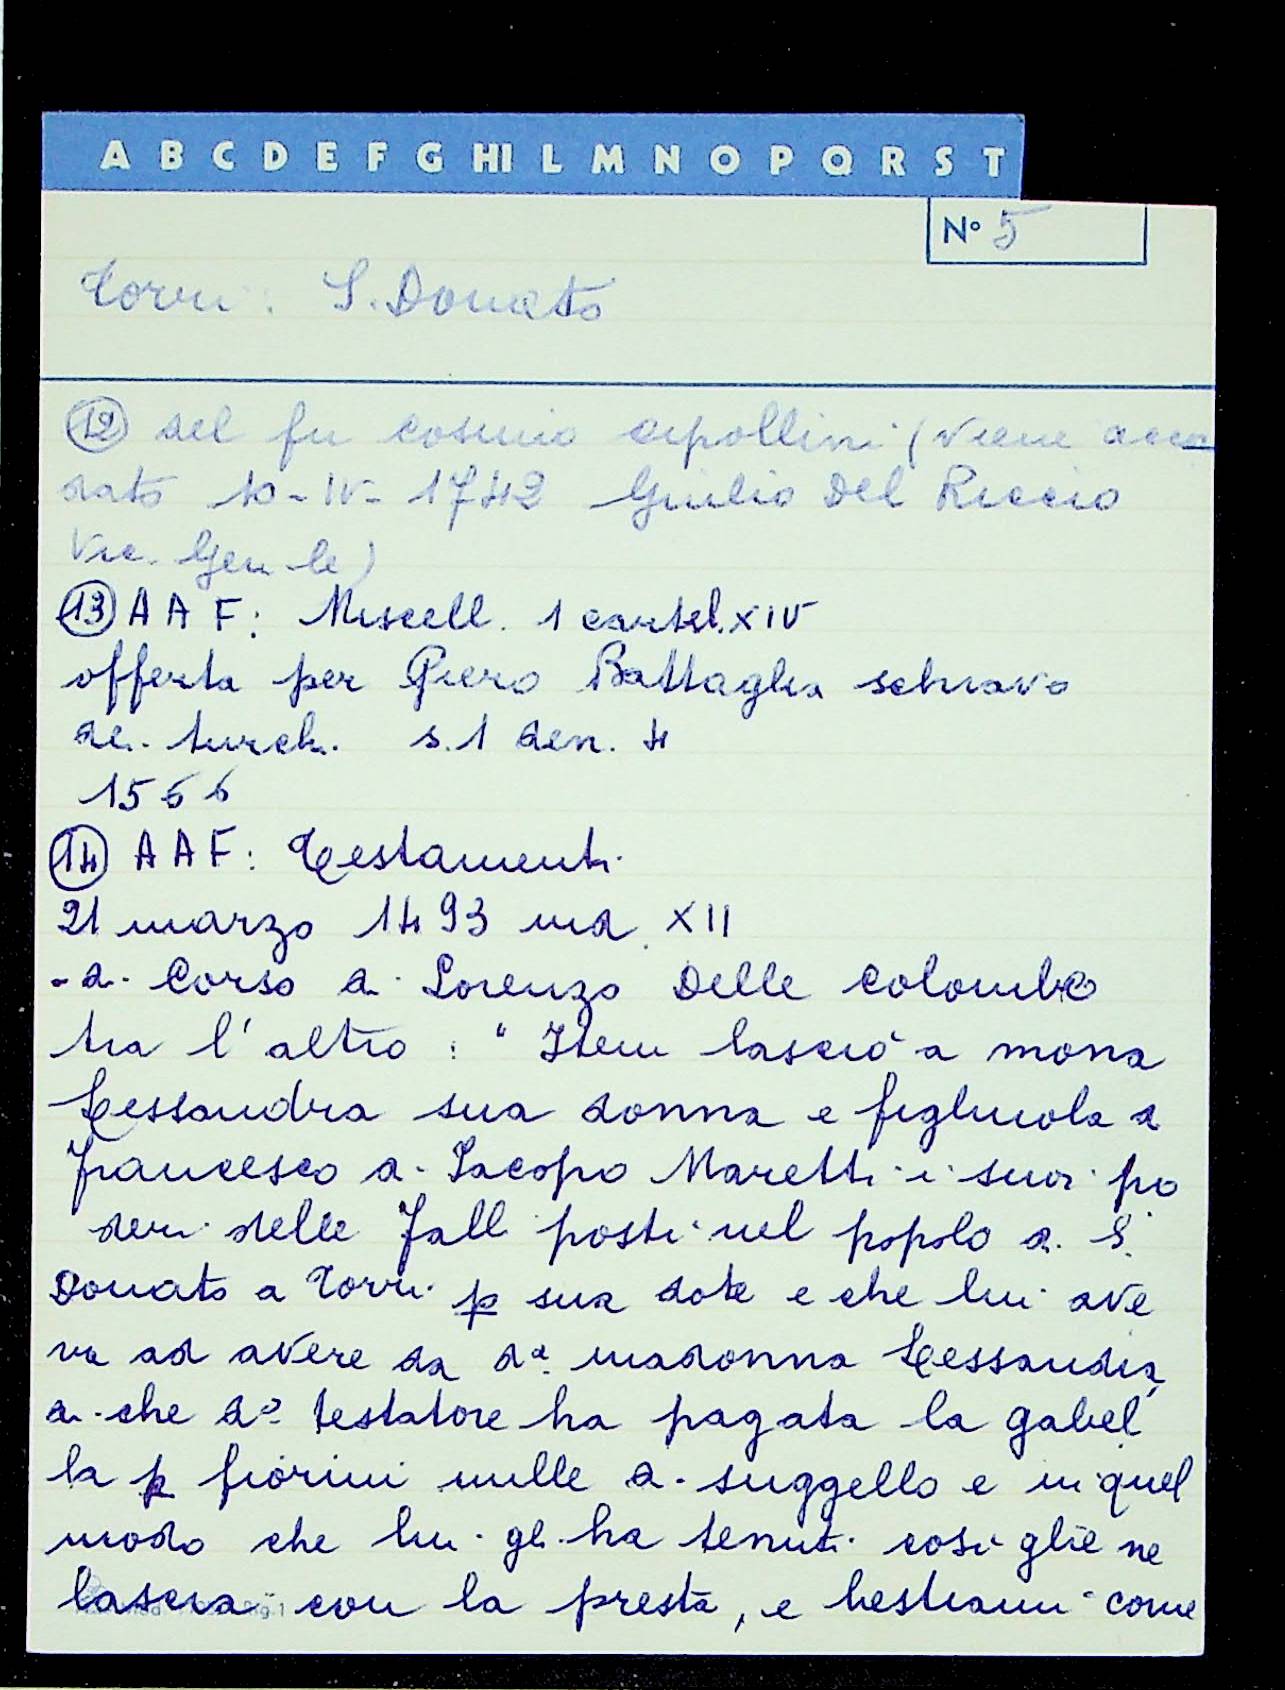 A B C D E F G HI L M N O P Q R S T
N° 5
Torri: S. Donato
(12) del fu cosimo apollini (viene acco
dato 10-IV-1742 Giulio Del Riccio
Vic. Gen-le)
(13) A A F: Miscell. 1 cartel. XIV
offerta per Piero Battaglia schiavo
dei turchi s.1 den. 4
1566
(14) A A F: Testamenti
21 marzo 1493 ind. XII
- di Corso di Lorenzo Delle Colombe
tra l'altro: "Item lasciò a mona
Lessandra sua donna e figliuola di
francesco di Iacopo Maretti i suoi po
deri delle Fall posti nel popolo di S.
Donato a Torri p sua dote e che lui ave
va ad avere da dª madonna Lessandra,
di che dº testatore ha pagata la gabel
la p fiorini mille di suggello e in quel
modo che lui gli ha tenuti così gliē ne
lascia con la presta, e bestiami come